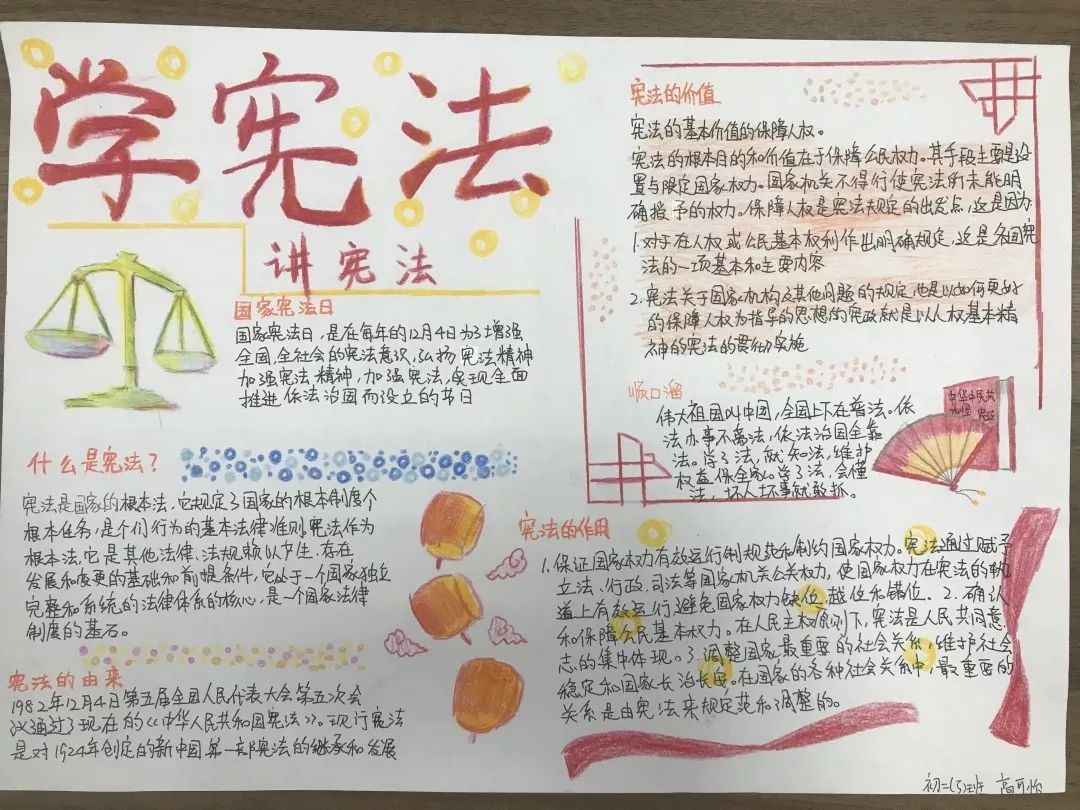 学宪法
讲宪法
国家宪法日
国家宪法日，是在每年的12月4日为了增强
全国，全社会的宪法意识，弘扬宪法精神
加强宪法精神，加强宪法，实现全面
推进依法治国而设立的节日
什么是宪法？
宪法是国家的根本法，它规定了国家的根本制度个
根本任务，是个们行为的基本法律准则。宪法作为
根本法，它是其他法律、法规赖以产生，存在
发展和变更的基础和前提条件，它处于一个国家独立
完整和系统的法律体系的核心，是一个国家法律
制度的基石。
宪法的由来
1982年12月4日第五届全国人民代表大会第五次会
议通过了现在的《中华人民共和国宪法》。现行宪法
是对1924年创定的新中国第一部宪法的继承和发展
宪法的价值
宪法的基本价值的保障人权。
宪法的根本目的和价值在于保障公民权力。其手段主要是设
置与限定国家权力。国家机关不得行使宪法所未能明
确授予的权力。保障人权是宪法规定的出发点，这是因为
1.对于在人权或公民基本权利作出明确规定，这是各国宪
法的一项基本和主要内容
2.宪法关于国家机构及其他问题的规定也是以如何更好
的保障人权为指导的思想的宪政就是以人权基本精
神的宪法的贯彻实施
顺口溜
伟大祖国叫中国，全国上下在普法。依
法办事不离法，依法治国全靠
法。学了法，就知法，维护
权益保全家。学了法，会懂
法，坏人坏事就敢抓。
中华人民共
和国 宪法
宪法的作用
1.保证国家权力有效运行制规范和制约国家权力。宪法通过赋予
立法、行政、司法等国家机关公共权力，使国家权力在宪法的轨
道上有效运行避免国家权力缺位、越位和错位。2.确认
和保障公民基本权力。在人民主权原则下，宪法是人民共同意
志的集中体现。3调整国家最重要的社会关系，维护社会
稳定和国家长治长安，在国家的各种社会关系中，最重要的
关系是由宪法来规定范和调整的。
初二(5)班 高可怡